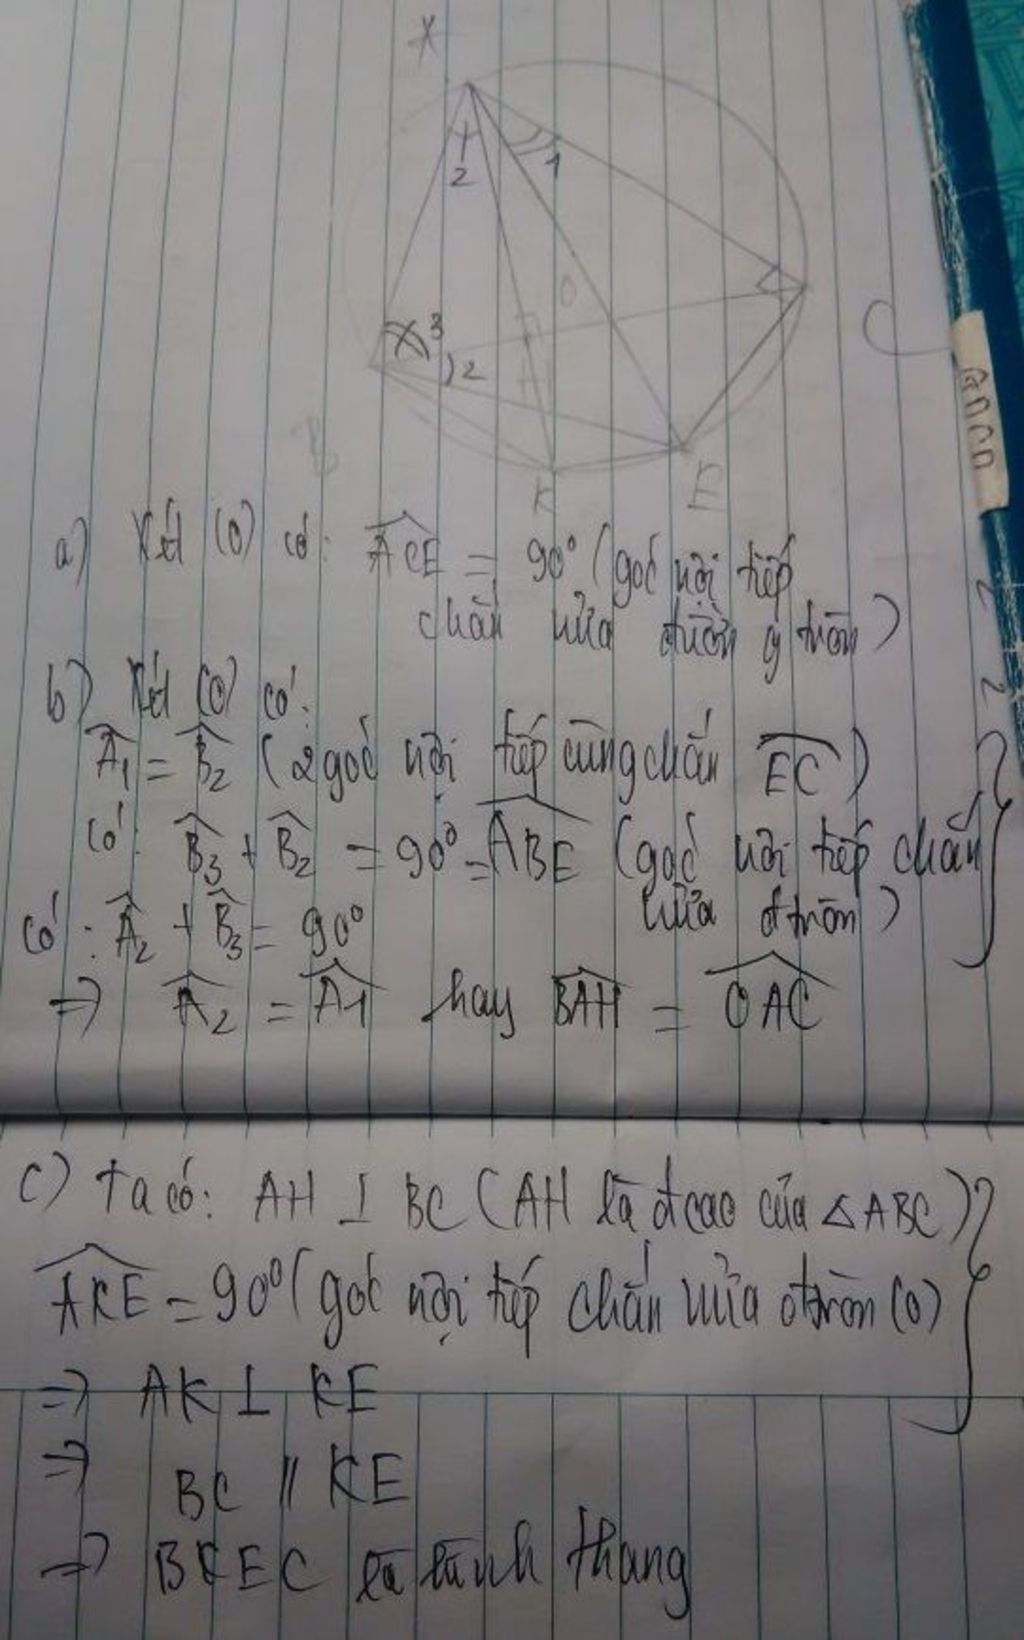 A
2
1
O
3
2
H
C
B
K
E
a) Xét (O) có: ACE = 90° (góc nội tiếp
chắn nửa đường tròn)
b) Xét (O) có:
A1 = B2 (2 góc nội tiếp cùng chắn EC)
có: B3 + B2 = 90° = ABE (góc nội tiếp chắn
nửa đtròn)
có: A2 + B3 = 90°
=> A2 = A1 hay BAH = OAC
c) Ta có: AH ⊥ BC (AH là đcao của △ABC)
AKE = 90° (góc nội tiếp chắn nửa đtròn (O)
=> AK ⊥ KE
=> BC // KE
=> BKEC là hình thang